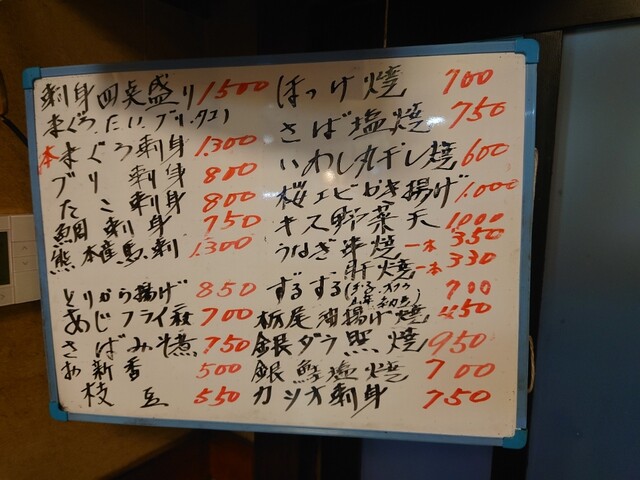 刺身四点盛り 1500
まぐろ.たい.ブリ.タコ
本まぐろ刺身 1.300
ブリ 刺身 800
たこ 刺身 800
鯛 刺身 750
熊本産馬刺 1.300
とりから揚げ 850
あじフライ 700
さばみそ煮 750
お新香 500
枝豆 550
ほっけ焼 700
さば塩焼 750
いわし丸干し焼 600
桜エビかき揚げ 1.000
キス野菜天 1000
うなぎ串焼 一本 350
肝焼 一本 330
ずるずる 700
栃尾油揚げ焼
銀ダラ照焼 950
銀鮭塩焼 700
カツオ刺身 750